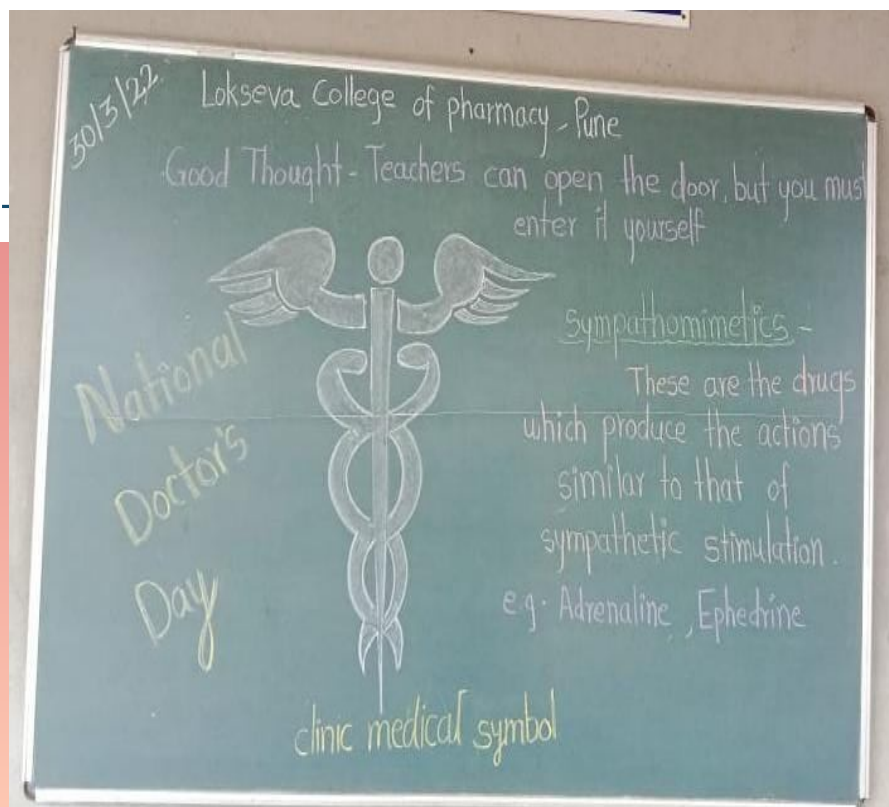 30/3/22
Lokseva College of pharmacy - Pune
Good Thought - Teachers can open the door, but you must
enter it yourself
National
Doctor's
Day
Sympathomimetics -
These are the drugs
which produce the actions
similar to that of
sympathetic stimulation.
e.g. Adrenaline, Ephedrine
clinic medical symbol